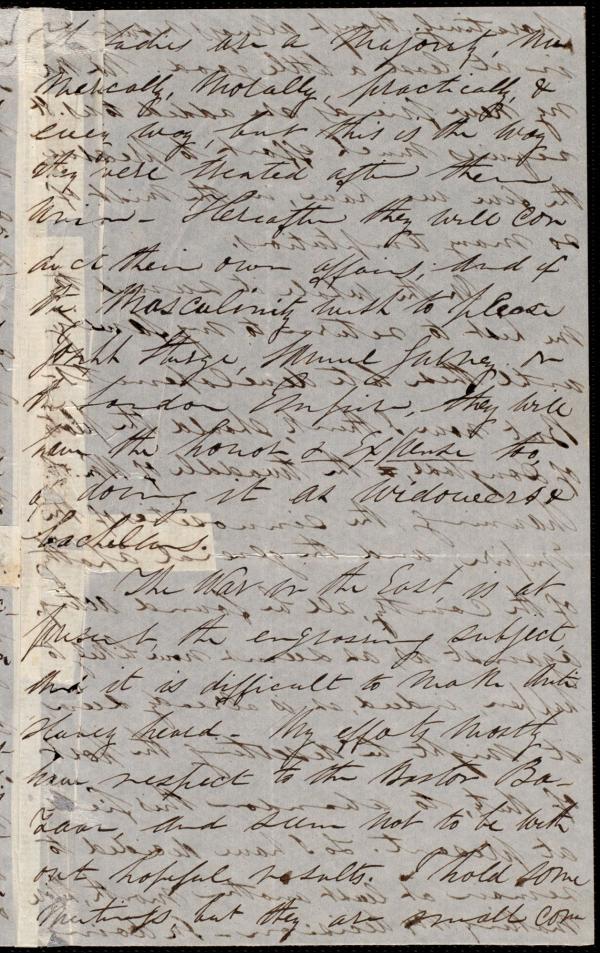 Ladies are a Majority, Nu-
merically, Morally, practically, &
every way, but this is the way
they were treated after their
Union - Hereafter they will con
duct their own affairs, and if
the Masculinity wish to please
Joseph Sturge, Samuel Gurney, &
the London Empire, they will
have the honor & Expense too,
of doing it as Widowers &
bachellors.
The War in the East is at
present, the engrossing subject,
and it is difficult to make Anti
Slavery heard - My efforts mostly
have respect to the Boston Ba-
zaar, and seem not to be with
out hopeful results. I hold some
Meetings, but they are small com